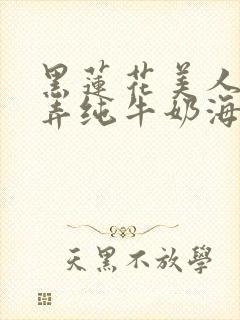 黑蓮花美人
弄纯牛奶海
天黑不放學